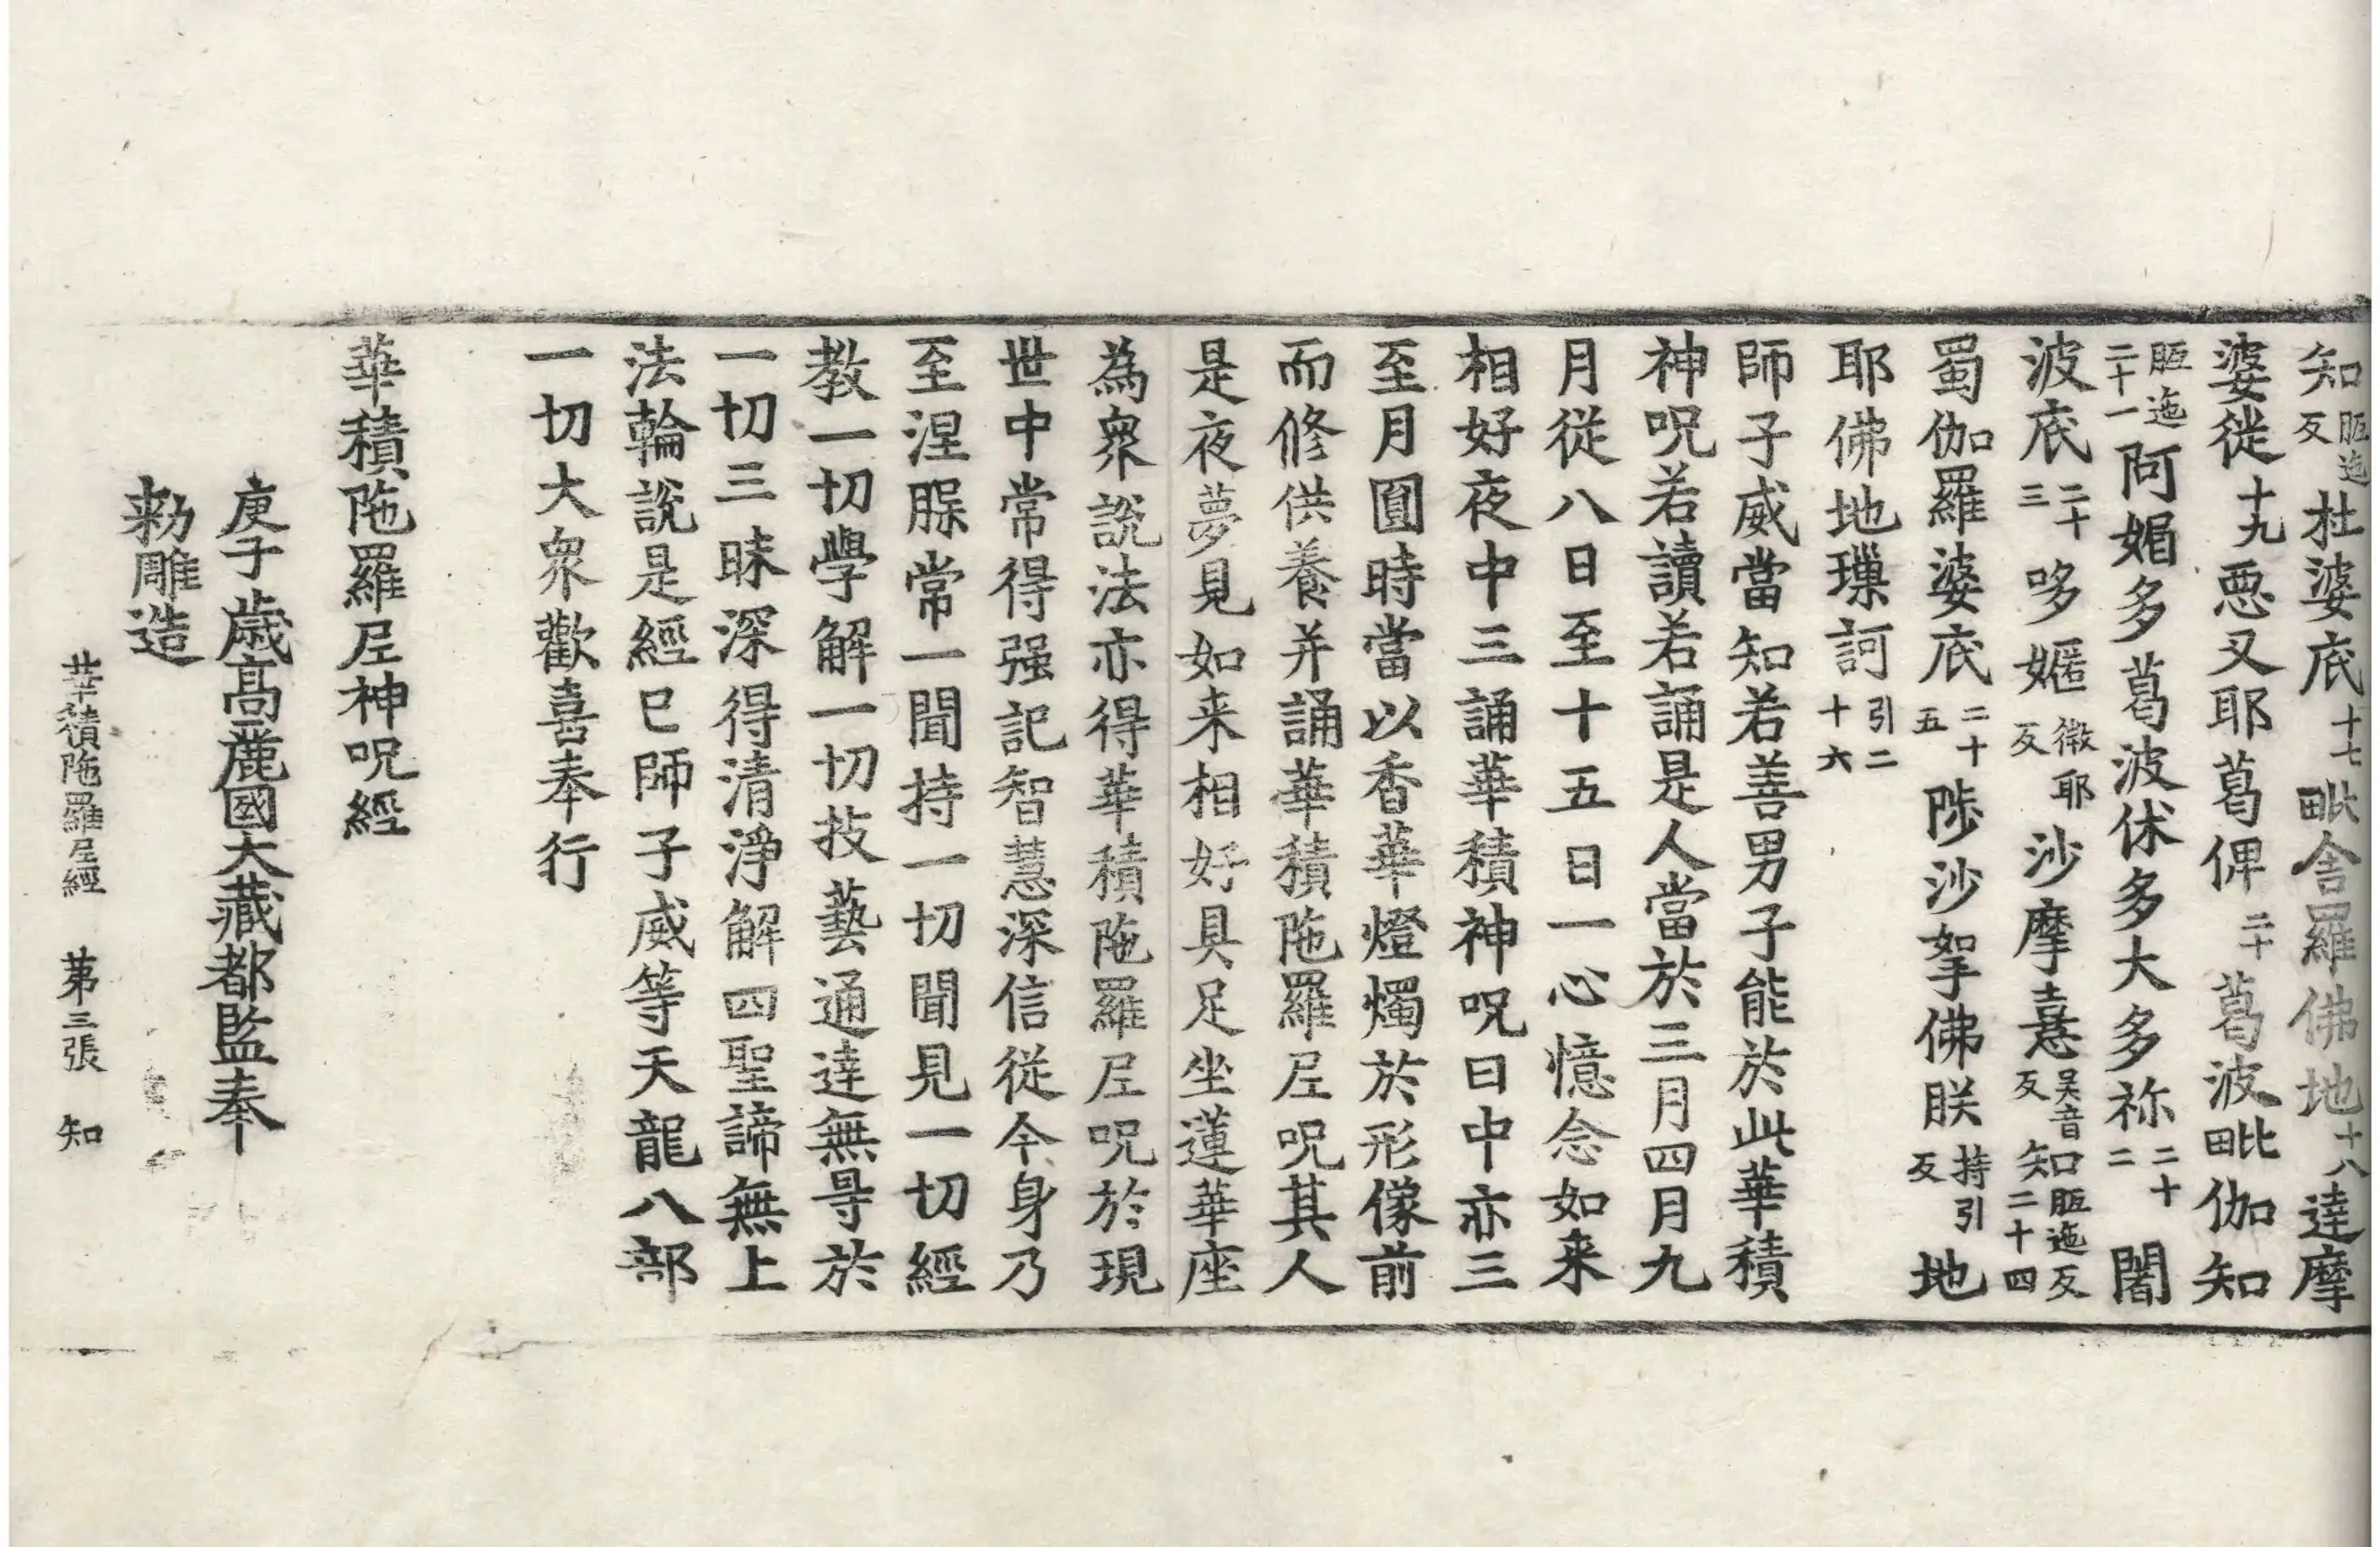 知胝迤反杜婆底十七毗舍羅佛地十八達摩
婆徙十九惡叉耶葛俾二十葛波毗伽知
胝迤二十一阿媚多葛波伏多大多祢二十二闍
波底二十三哆嫟徵耶反沙摩憙吴音反知胝迤反二十四
蜀伽羅婆底二十五陟沙拏佛朕持引反地
耶佛地㻡訶引二十六
師子威當知若善男子能於此華積
神呪若讀若誦是人當於三月四月九
月從八日至十五日一心憶念如来
相好夜中三誦華積神呪日中亦三
至月圓時當以香華燈燭於形像前
而修供養并誦華積陁羅尼呪其人
是夜夢見如来相好具足坐蓮華座
為衆說法亦得華積陁羅尼呪於現
世中常得强記智慧深信從今身乃
至涅脲常一聞持一切聞見一切經
教一切學解一切技藝通達無㝵於
一切三昧深得清淨解四聖諦無上
法輪說是經已師子威等天龍八部
一切大衆歡喜奉行
華積陁羅尼神呪經
庚子歲高麗國大藏都監奉
勑雕造
華積陁羅尼經 第三張 知